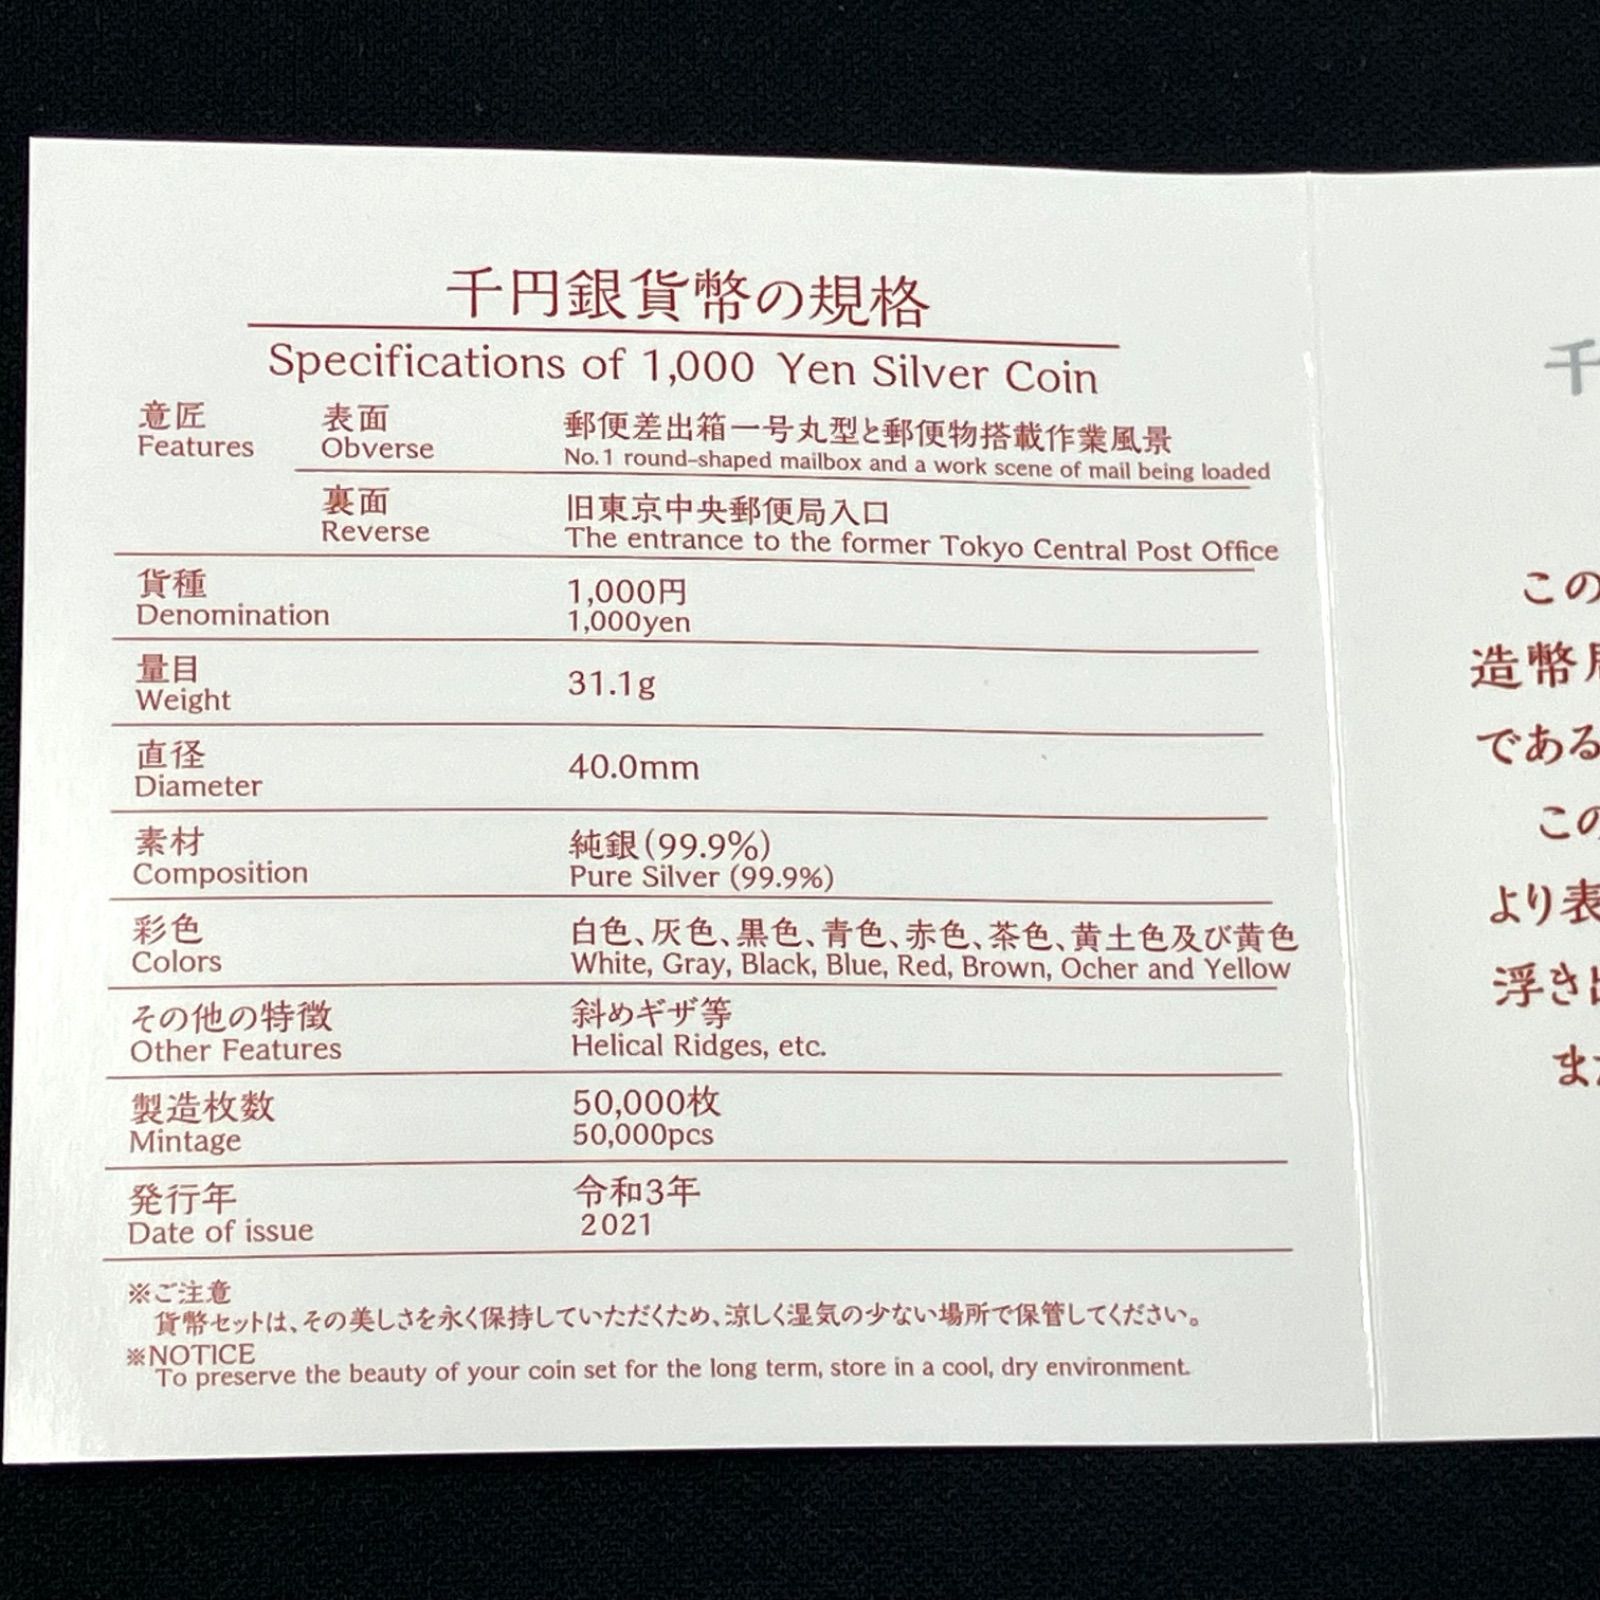 千円銀貨幣の規格
Specifications of 1,000 Yen Silver Coin
意匠
Features
表面
Obverse
郵便差出箱一号丸型と郵便物搭載作業風景
No.1 round-shaped mailbox and a work scene of mail being loaded
裏面
Reverse
旧東京中央郵便局入口
The entrance to the former Tokyo Central Post Office
貨種
Denomination
1,000円
1,000yen
量目
Weight
31.1g
直径
Diameter
40.0mm
素材
Composition
純銀(99.9%)
Pure Silver (99.9%)
彩色
Colors
白色、灰色、黒色、青色、赤色、茶色、黄土色及び黄色
White, Gray, Black, Blue, Red, Brown, Ocher and Yellow
その他の特徴
Other Features
斜めギザ等
Helical Ridges, etc.
製造枚数
Mintage
50,000枚
50,000pcs
発行年
Date of issue
令和3年
2021
※ご注意
貨幣セットは、その美しさを永く保持していただくため、涼しく湿気の少ない場所で保管してください。
※NOTICE
To preserve the beauty of your coin set for the long term, store in a cool, dry environment.
千
この
造幣
である
この
より表
浮き
ま